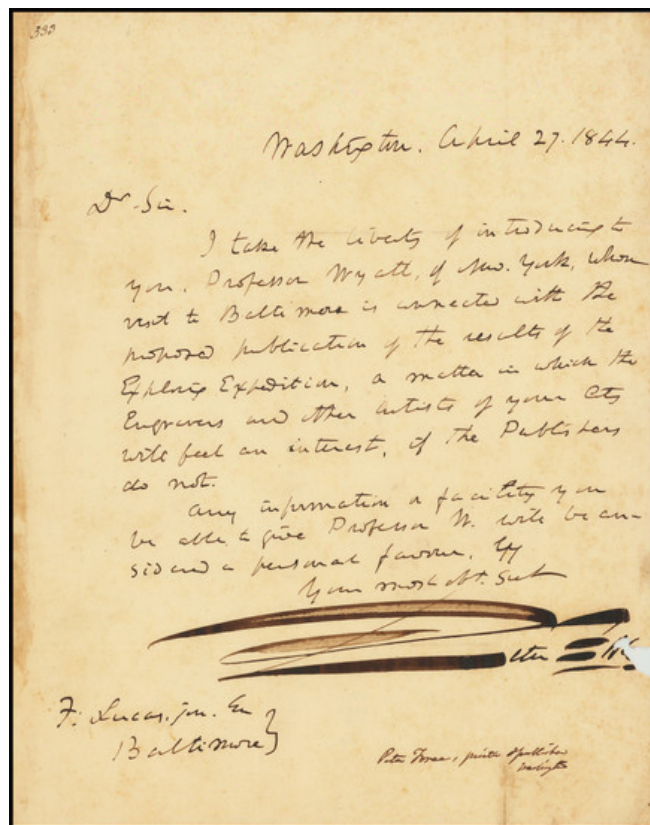 333
Washington. April 27. 1844.
Dr Sir.
I take the liberty of introducing to
you, Professor Wyatt, of New. York, whose
visit to Baltimore is connected with the
proposed publication of the results of the
Exploring Expedition, a matter in which the
Engravers and other artists of your City
will feel an interest, if the Publishers
do not.
Any information or facility you
be able to give Professor W. will be con-
sidered a personal favour, by
Your most obt. Sert
F. Lucas. jun. Esq
Baltimore }
Peter Force, printer & publisher
Washington